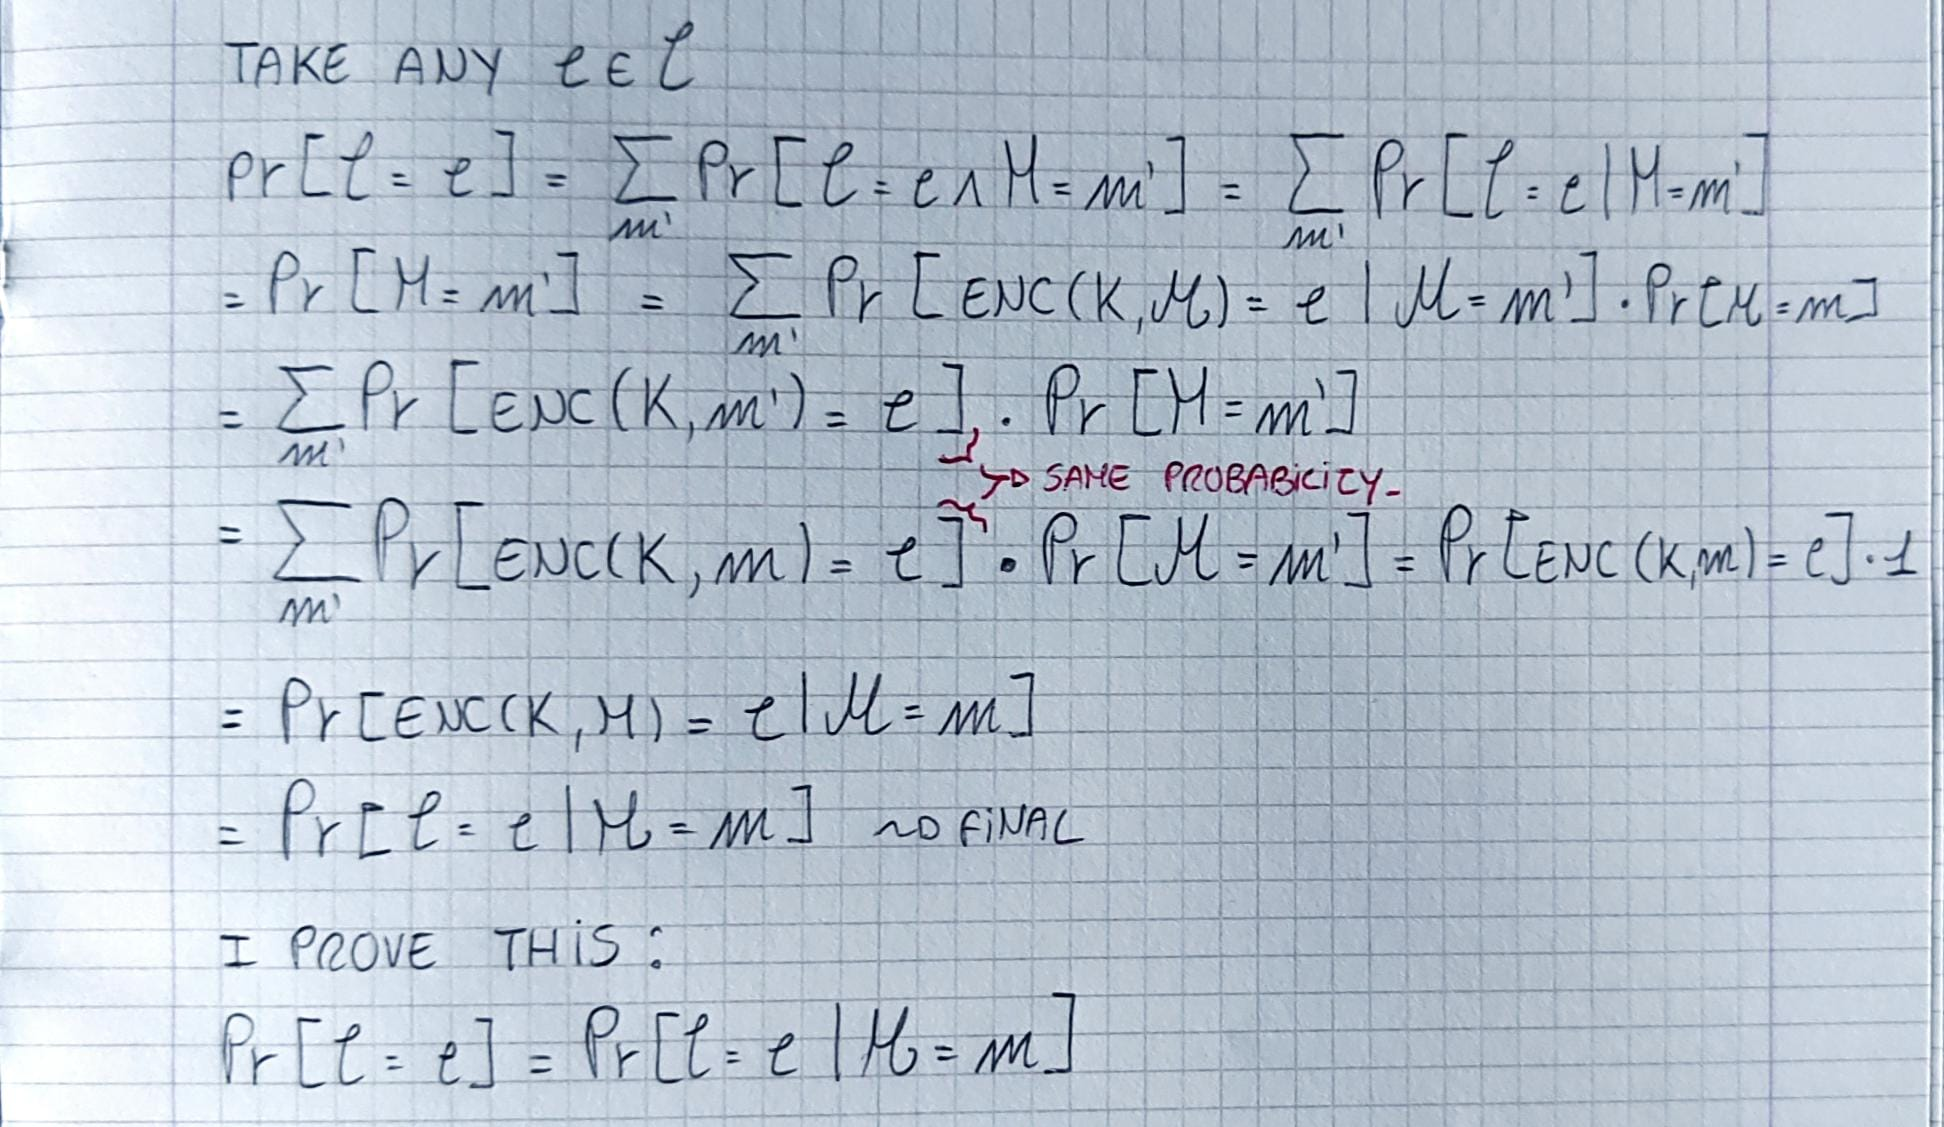 TAKE ANY c ∈ C
Pr[C = c] = Σ_m' Pr[C = c ∧ M = m'] = Σ_m' Pr[C = c | M = m']
= Pr[M = m'] = Σ_m' Pr[ENC(K, M) = c | M = m'] · Pr[M = m]
= Σ_m' Pr[ENC(K, m') = c] · Pr[M = m']
→ SAME PROBABILITY.
= Σ_m' Pr[ENC(K, m) = c] · Pr[M = m'] = Pr[ENC(K, m) = c] · 1
= Pr[ENC(K, M) = c | M = m]
= Pr[C = c | M = m] → FINAL
I PROVE THIS:
Pr[C = c] = Pr[C = c | M = m]